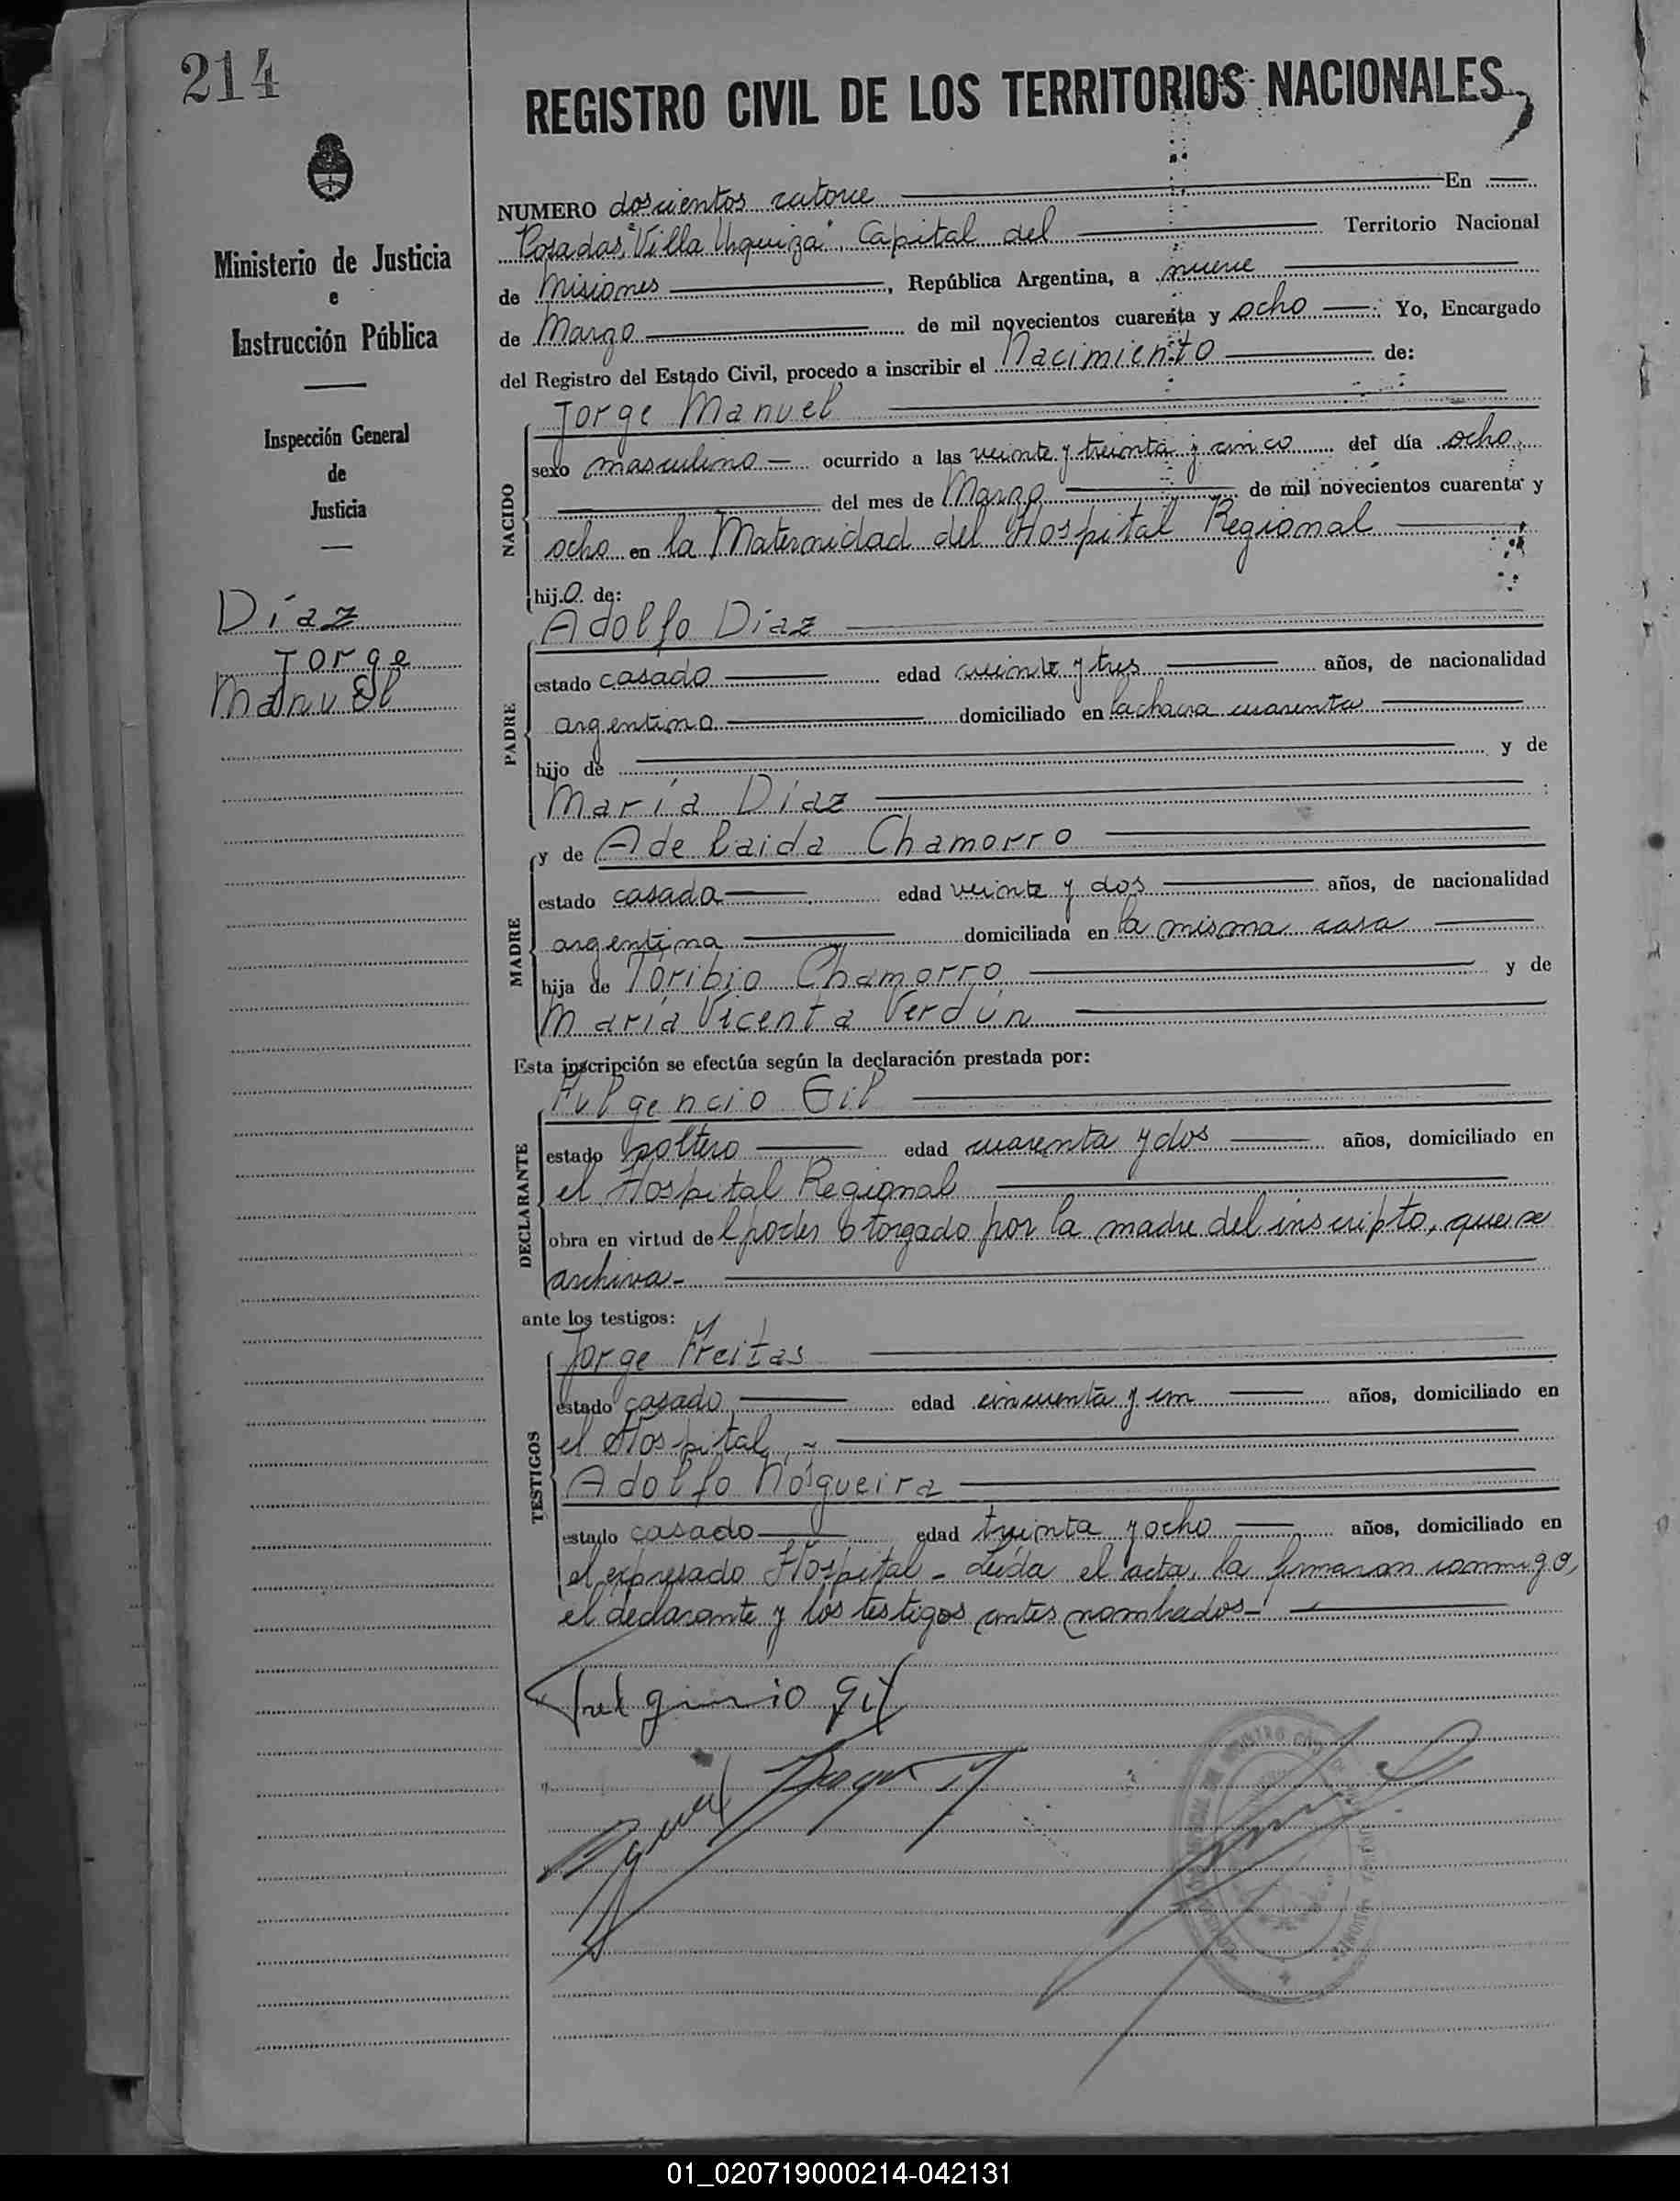 214
REGISTRO CIVIL DE LOS TERRITORIOS NACIONALES
Ministerio de Justicia
e
Instrucción Pública
Inspección General
de
Justicia
Díaz
Jorge
Manuel
NUMERO doscientos catorce En
Posadas, "Villa Urquiza", Capital del Territorio Nacional
de Misiones, República Argentina, a nueve
de Marzo de mil novecientos cuarenta y ocho Yo, Encargado
del Registro del Estado Civil, procedo a inscribir el Nacimiento de:
NACIDO
Jorge Manuel
sexo masculino ocurrido a las veinte y treinta y cinco del día ocho
del mes de Marzo de mil novecientos cuarenta y
ocho en la Maternidad del Hospital Regional
hijo de:
PADRE
Adolfo Díaz
estado casado edad veinte y tres años, de nacionalidad
argentino domiciliado en la chacra cuarenta
hijo de y de
María Díaz
MADRE
y de Adelaida Chamorro
estado casada edad veinte y dos años, de nacionalidad
argentina domiciliada en la misma casa
hija de Toribio Chamorro y de
María Vicenta Verdún
Esta inscripción se efectúa según la declaración prestada por:
DECLARANTE
Fulgencio Gil
estado soltero edad cuarenta y dos años, domiciliado en
el Hospital Regional
obra en virtud del poder otorgado por la madre del inscripto, que se
archiva.-
ante los testigos:
TESTIGOS
Jorge Freitas
estado casado edad cincuenta y un años, domiciliado en
el Hospital,-
Adolfo Nosgueira
estado casado edad treinta y ocho años, domiciliado en
el expresado Hospital - Leida el acta, la firmaron conmigo,
el declarante y los testigos antes nombrados-
Fulgencio Gil
01_020719000214-042131